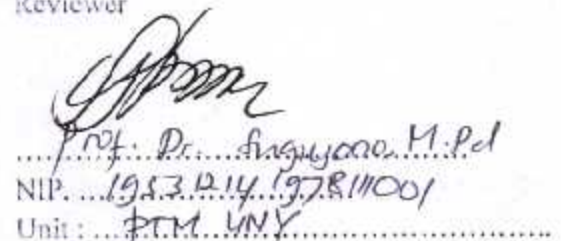 Reviewer
Prof. Dr. Sugiyono, M.Pd
NIP. 19531214 197811001
Unit : PTM UNY